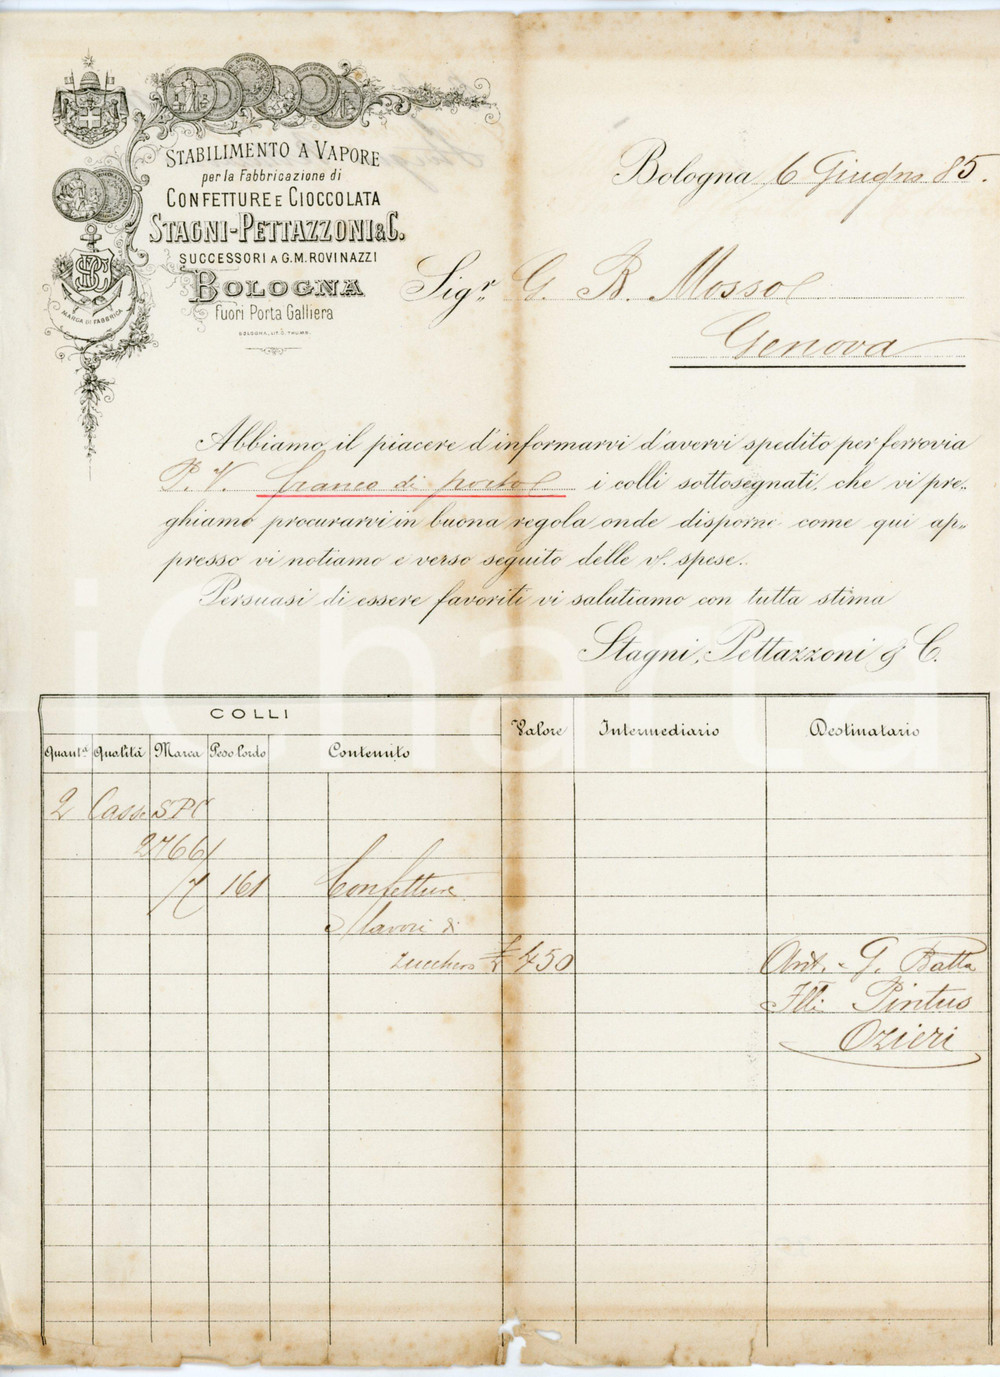 STABILIMENTO A VAPORE
per la Fabbricazione di
CONFETTURE E CIOCCOLATA
STAGNI-PETTAZZONI & C.
SUCCESSORI A G. M. ROVINAZZI
BOLOGNA
Fuori Porta Galliera
BOLOGNA, LIT. G. THUMB.
SPC
MARCA DI FABBRICA
Bologna 6 Giugno 85.
Sigr. G. B. Mosso
Genova
Abbiamo il piacere d'informarvi d'avervi spedito per ferrovia
P. V. franco di porto i colli sottosegnati, che vi pre=
ghiamo procurarvi in buona regola onde disporne come qui ap=
presso vi notiamo e verso seguito delle v/. spese.
Persuasi di essere favoriti vi salutiamo con tutta stima
Stagni, Pettazzoni & C.
iCharta
COLLI Valore Intermediario Destinatario
Quantà Qualità Marca Peso lordo Contenuto
2 Casse SPC
2766/
/7 161 Confetture
e lavori di
zucchero £ 450 Ant. - G. Batta
Flli Pintus
Ozieri